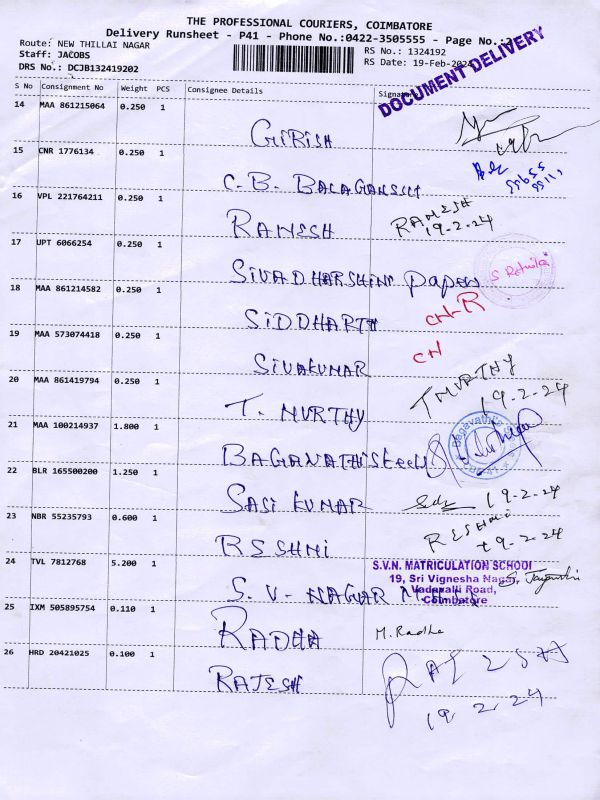 THE PROFESSIONAL COURIERS, COIMBATORE
Delivery Runsheet - P41 - Phone No.:0422-3505555 - Page No.:
Route: NEW THILLAI NAGAR
RS No.: 1324192
Staff: JACOBS
RS Date: 19-Feb-2024
DRS No.: DCJB132419202
DOCUMENT DELIVERY
S No Consignment No Weight PCS Consignee Details Signature
14 MAA 861215064 0.250 1 GIRISH
15 CNR 1776134 0.250 1 C. B. BALAGANESH
16 VPL 221764211 0.250 1 RAMESH RAMESH
19-2-24
17 UPT 6066254 0.250 1 SIVADHARSHINI papers
18 MAA 861214582 0.250 1 SIDDHARTH CN-R
19 MAA 573074418 0.250 1 SIVAKUMAR CN
20 MAA 861419794 0.250 1 T. MURTHY T MURTHY
19-2-24
21 MAA 100214937 1.800 1 BAGAVATHI Steels
22 BLR 165500200 1.250 1 SASI KUMAR 19-2-24
23 NBR 55235793 0.600 1 RSSHMI RESHMI
19-2-24
24 TVL 7812768 5.200 1 S. V- NAGAR
S.V.N. MATRICULATION SCHOOL
19, Sri Vignesha Nagar,
Vadavalli Road,
Coimbatore
25 IXM 505895754 0.110 1 RADHA M. Radha
26 HRD 20421025 0.100 1 RAJESH
19 2 24